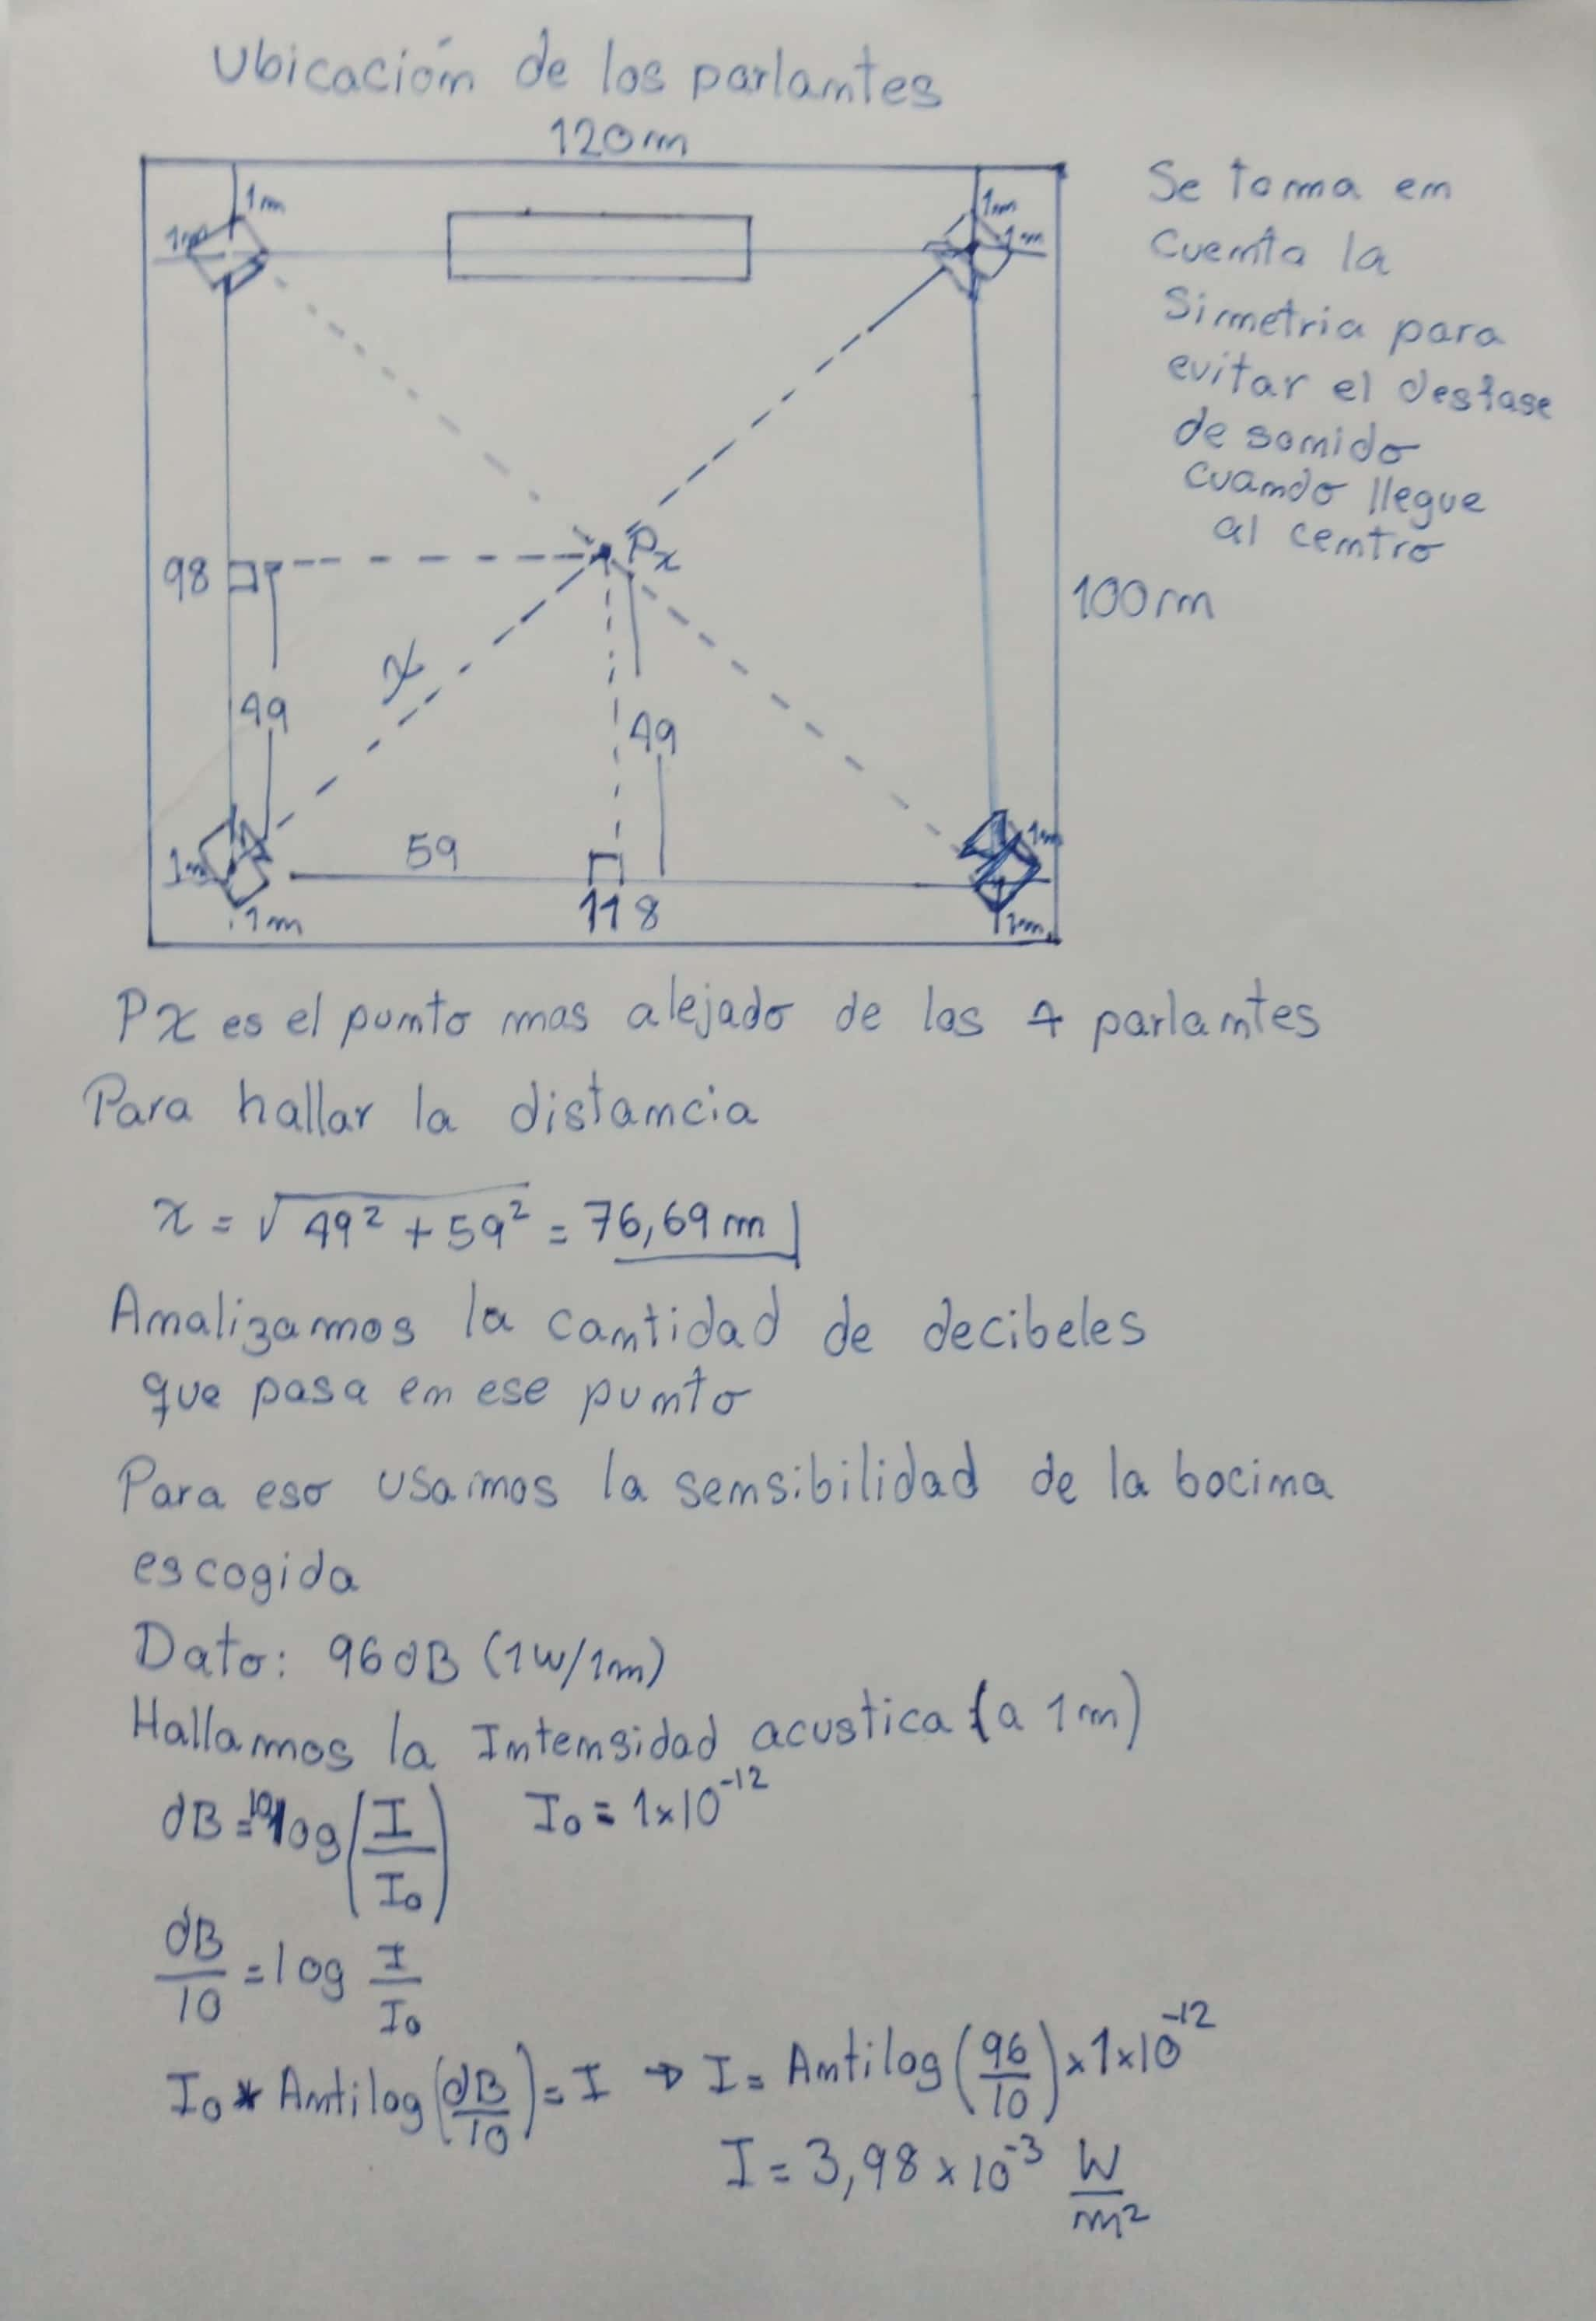 Ubicación de los parlantes
120m
1m
1m
1m
1m
Se toma en
cuenta la
Simetria para
evitar el desfase
de sonido
cuando llegue
al centro
Px
98
100m
x
49
49
59
1m
1m
1m
1m
118
Px es el punto mas alejado de los 4 parlantes
Para hallar la distancia
x = √49² + 59² = 76,69 m
Analizamos la cantidad de decibeles
que pasa en ese punto
Para eso usamos la sensibilidad de la bocina
escogida
Dato: 96dB (1W/1m)
Hallamos la Intensidad acustica (a 1m)
dB = 10log(I/I₀) I₀ = 1x10⁻¹²
dB/10 = log I/I₀
I₀ * Antilog(dB/10) = I → I = Antilog(96/10) x 1x10⁻¹²
I = 3,98 x 10⁻³ W/m²